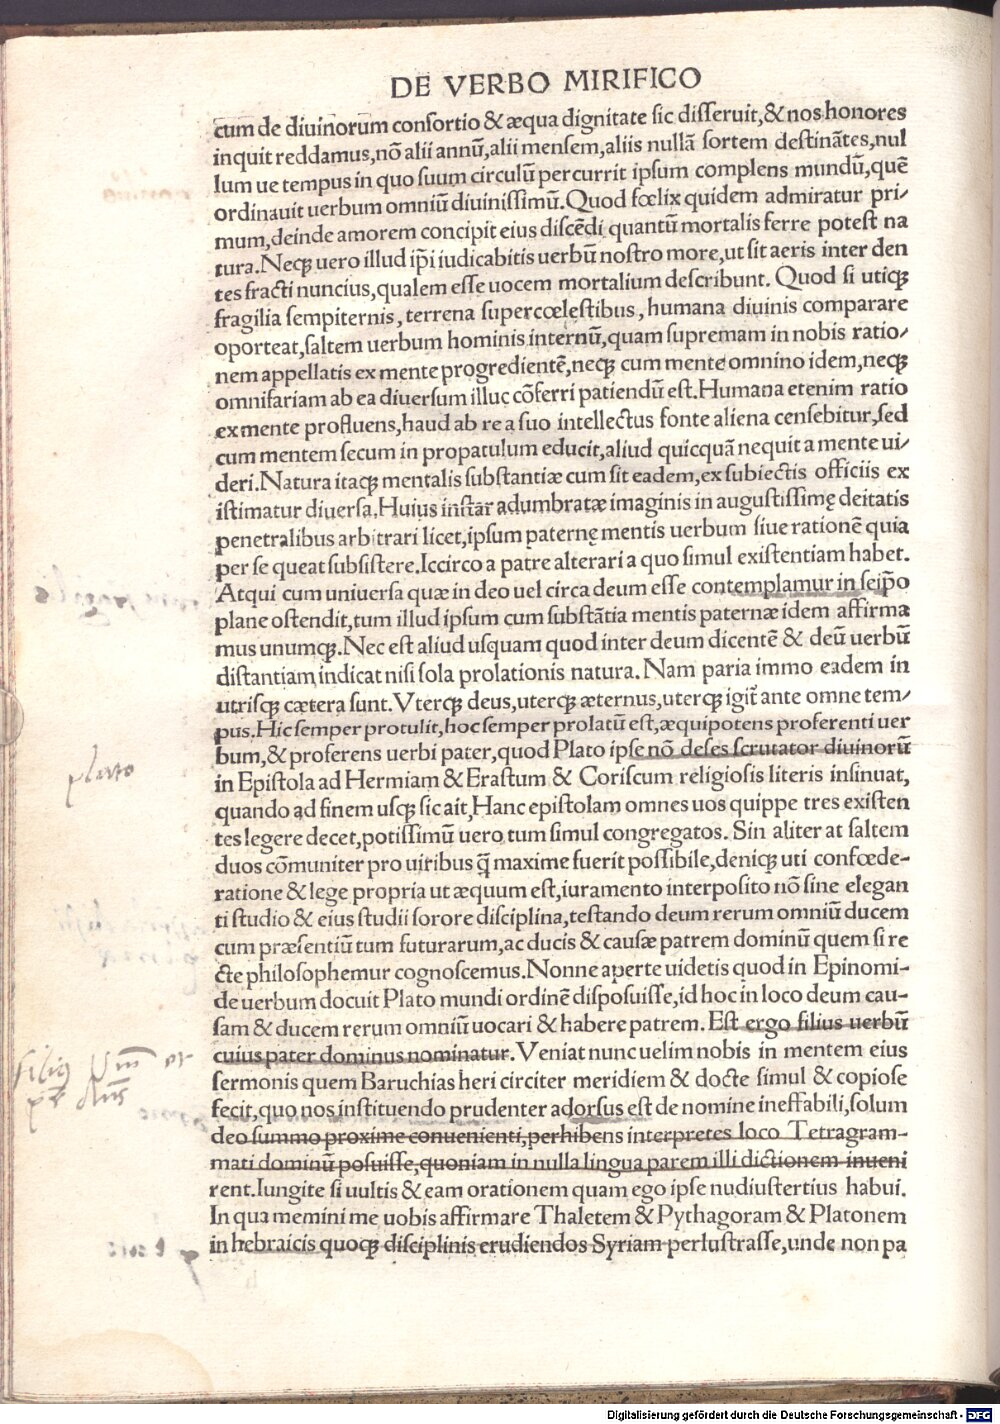 DE VERBO MIRIFICO
cum de diuinorum consortio & æqua dignitate sic disseruit,& nos honores
inquit reddamus,nõ alii annũ,alii mensem,aliis nullã sortem destinãtes,nul
lum ue tempus in quo suum circulũ percurrit ipsum complens mundũ,quẽ
ordinauit uerbum omniũ diuinissimũ.Quod fœlix quidem admiratur pri/
mum,deinde amorem concipit eius discẽdi quantũ mortalis ferre potest na
tura.Necꝗ uero illud ip̃i iudicabitis uerbũ nostro more,ut sit aeris inter den
tes fracti nuncius,qualem esse uocem mortalium describunt. Quod si utiqꝫ
fragilia sempiternis, terrena supercœlestibus, humana diuinis comparare
oporteat,saltem uerbum hominis internũ,quam supremam in nobis ratio/
nem appellatis ex mente progredientẽ,neqꝫ cum mente omnino idem,neqꝫ
omnifariam ab ea diuersum illuc cõferri patiendũ est.Humana etenim ratio
ex mente profluens,haud ab re a suo intellectus fonte aliena censebitur,sed
cum mentem secum in propatulum educit,aliud quicquã nequit a mente ui/
deri.Natura itaqꝫ mentalis substantiæ cum sit eadem,ex subiectis officiis ex
istimatur diuersa.Huius instar adumbratæ imaginis in augustissimę deitatis
penetralibus arbitrari licet,ipsum paternę mentis uerbum siue rationẽ quia
per se queat subsistere.Iccirco a patre alterari a quo simul existentiam habet.
Atqui cum uniuersa quæ in deo uel circa deum esse contemplamur in seip̃o
plane ostendit,tum illud ipsum cum substãtia mentis paternæ idem affirma
mus unumqꝫ.Nec est aliud usquam quod inter deum dicentẽ & deũ uerbũ
distantiam indicat nisi sola prolationis natura. Nam paria immo eadem in
utrisqꝫ cætera sunt.Vterqꝫ deus,uterqꝫ æternus,uterqꝫ igit᷑ ante omne tem/
pus.Hic semper protulit,hoc semper prolatũ est,æquipotens proferenti uer
bum,& proferens uerbi pater,quod Plato ipse nõ deses scrutator diuinorũ
in Epistola ad Hermiam & Erastum & Coriscum religiosis literis insinuat,
quando ad finem usqꝫ sic ait,Hanc epistolam omnes uos quippe tres existen
tes legere decet,potissimũ uero tum simul congregatos. Sin aliter at saltem
duos cõmuniter pro uiribus q̃ maxime fuerit possibile,deniqꝫ uti confœde-
ratione & lege propria ut æquum est,iuramento interposito nõ sine elegan
ti studio & eius studii sorore disciplina,testando deum rerum omniũ ducem
cum præsentiũ tum futurarum,ac ducis & causæ patrem dominũ quem si re
cte philosophemur cognoscemus.Nonne aperte uidetis quod in Epinomi-
de uerbum docuit Plato mundi ordinẽ disposuisse,id hoc in loco deum cau-
sam & ducem rerum omniũ uocari & habere patrem. Est ergo filius uerbũ
cuius pater dominus nominatur.Veniat nunc uelim nobis in mentem eius
sermonis quem Baruchias heri circiter meridiem & docte simul & copiose
fecit,quo nos instituendo prudenter adorsus est de nomine ineffabili,solum
deo summo proxime conuenienti,perhibens interpretes loco Tetragram-
mati dominũ posuisse,quoniam in nulla lingua parem illi dictionem inueni
rent.Iungite si uultis & eam orationem quam ego ipse nudiustertius habui.
In qua memini me uobis affirmare Thaletem & Pythagoram & Platonem
in hebraicis quoqꝫ disciplinis erudiendos Syriam perlustrasse,unde non pa
plato
filiꝰ Vm̃ et
pr̃ dñs
Digitalisierung gefördert durch die Deutsche Forschungsgemeinschaft - DFG